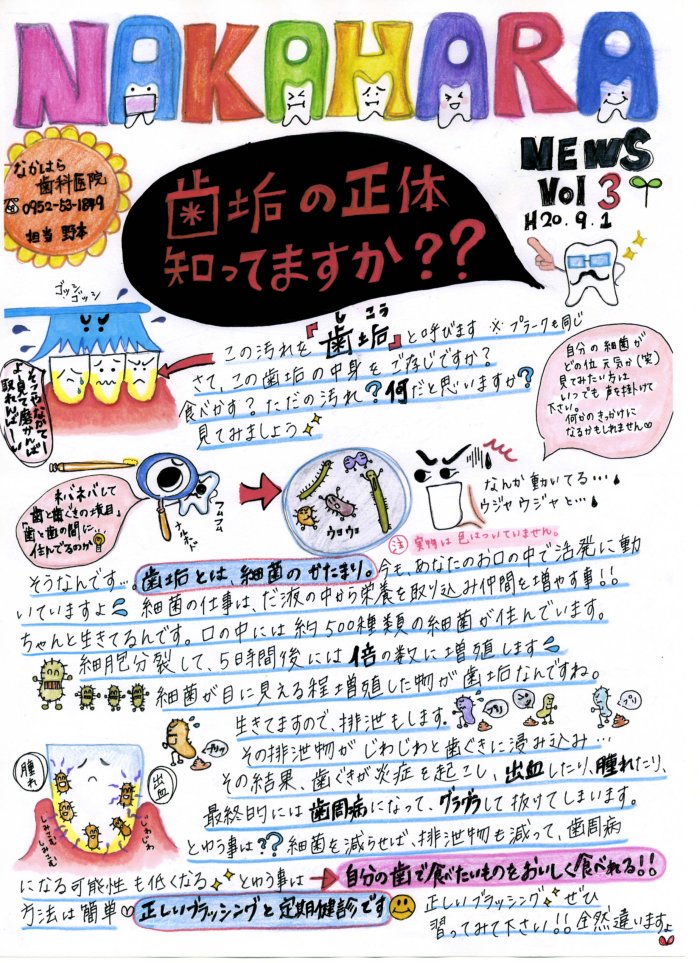 NAKAHARA
NEWS
Vol 3
H20.9.1
なかはら
歯科医院
☎0952-53-1889
担当 野本
歯垢の正体
知ってますか??
ゴッシ
ゴッシ
この汚れを『歯垢』と呼びます ※プラークも同じ
しこう
さて、この歯垢の中身をご存じですか?
食べかす?ただの汚れ?何だと思いますか?
見てみましょう
自分の細菌が
どの位元気か(笑)
見てみたい方は
いつでも声を掛けて
下さい。
何かのきっかけに
なるかもしれません♡
ネバネバして
「歯と歯ぐきの境目」
「歯と歯の間に…
住んでるのか
フムフム
ナルホド
ウヨウヨ
なんか動いてる…
ウジャウジャと…
注 実物は色はついていません。
そうなんです…。歯垢とは、細菌のかたまり。今も、あなたのお口の中で活発に動
いていますよ 細菌の仕事は、だ液の中から栄養を取り込み仲間を増やす事!!
ちゃんと生きてるんです。口の中には約500種類の細菌が住んでいます。
細胞分裂して、5時間後には倍の数に増殖します
細菌が目に見える程増殖した物が歯垢なんですね。
生きてますので、排泄もします。
プリッ
プリ
プリ
その排泄物がじわじわと歯ぐきに浸み込み…
その結果、歯ぐきが炎症を起こし、出血したり、腫れたり、
最終的には歯周病になって、グラグラして抜けてしまいます。
腫れ
出血
しみこむ
しみこむ
じわじわ
とゆう事は??細菌を減らせば、排泄物も減って、歯周病
になる可能性も低くなる とゆう事は→自分の歯で食べたいものをおいしく食べれる!!
方法は簡単♡正しいブラッシングと定期健診です
正しいブラッシング ぜひ
習ってみて下さい!!全然違いますよ